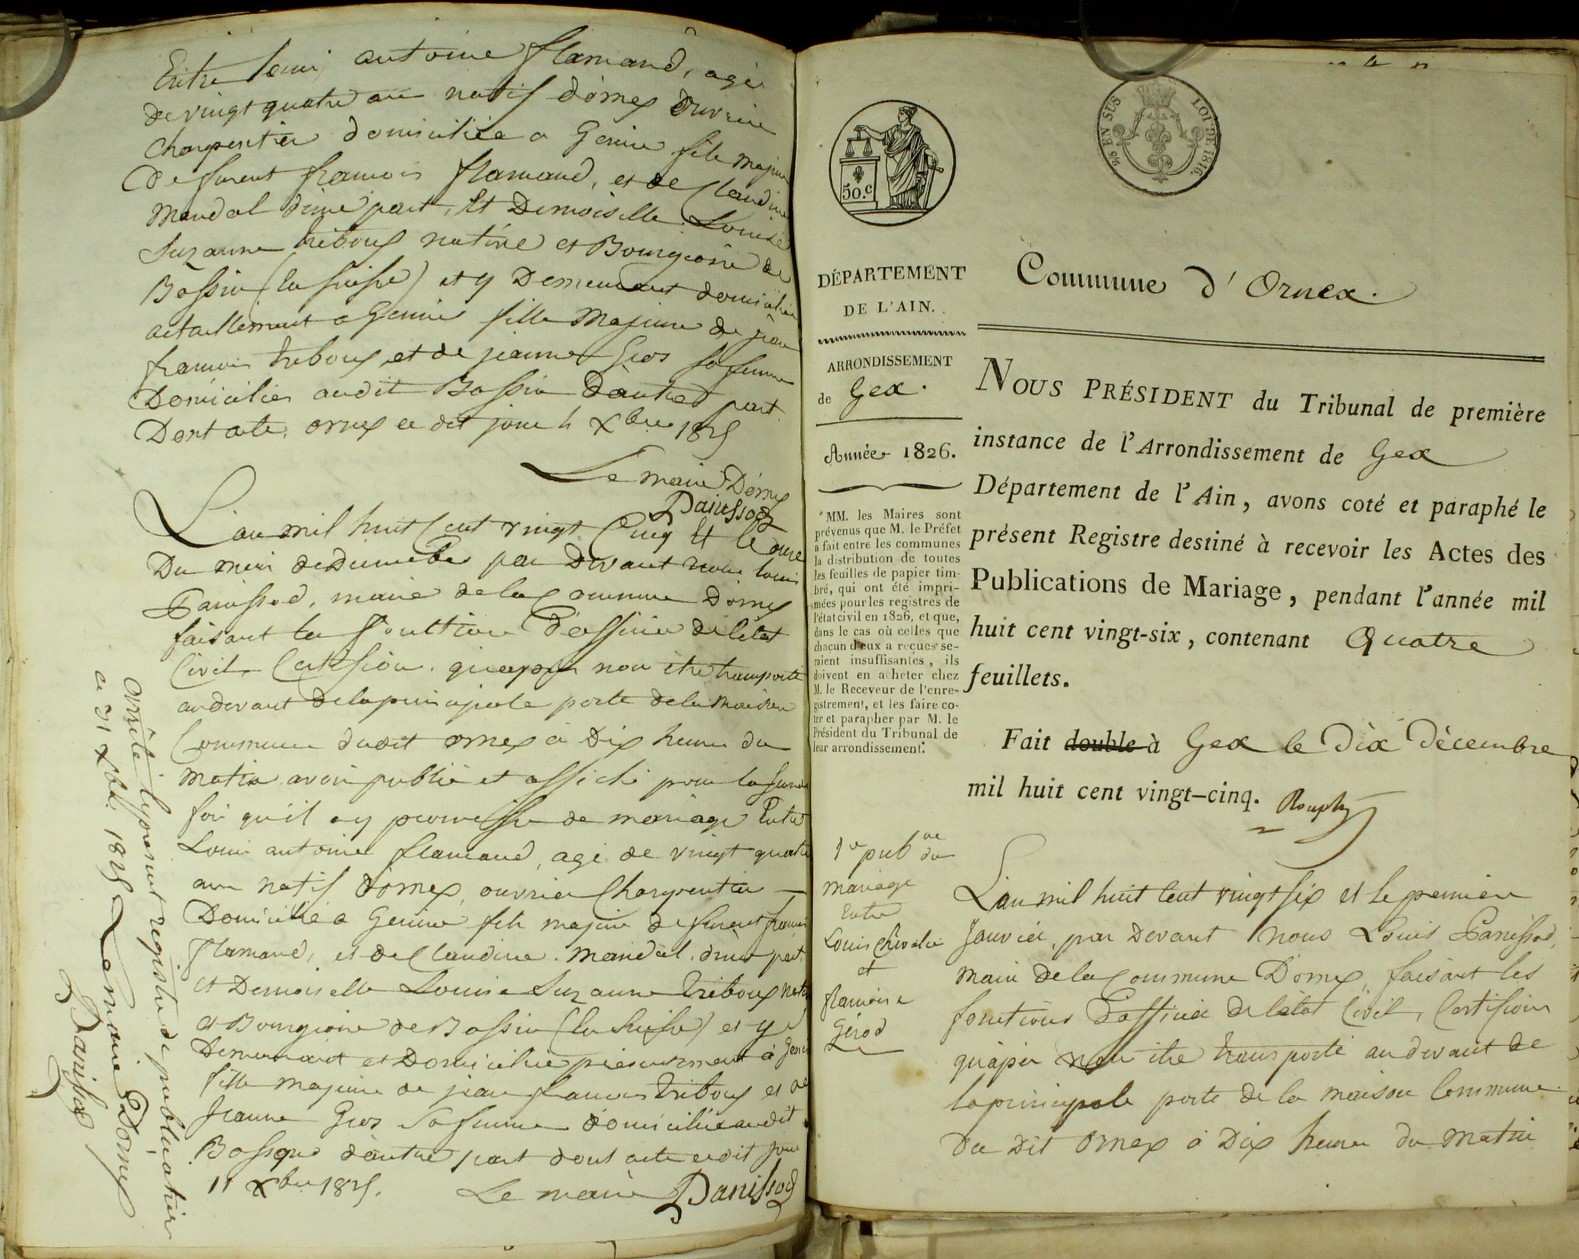 Entre Louis antoine flamand, agé
de vingt quatre ans natif dornex Ouvrier
Charpentier domicilié a Genève fils majeur
De furent francois flamand, et de Claudine
Mendal d'une part, Et Demoiselle Louise
Suzanne triboux native et Bourgeoise de
Bassin (la suisse) et y Demeurant domiciliée
actuellement a Genève fille Majeure de jean
francois triboux et de jeanne Gros sa femme
Domiciliés audit Bassin Dautre part
Dont acte, ornex ce dit jour 4 Xbre 1825
Le maire Dornex
Panissod
L'an mil huit Cent vingt Cinq Et le onze
Du mois de Decembre par Devant nous louis
Panissod, maire de la Commune Dornex
faisant les fonctions D'officier de létat
Civil Certifions qu'après nous être transporté
au devant de la principale porte de la maison
Commune dudit ornex à Dix heures du
matin avoir publié et affiché pour la seconde
fois qu'il a y promesse de mariage Entre
Louis antoine flamand, agé de vingt quatre
ans natif dornex, ouvrier Charpentier
Domicilié a Genève fils majeur de furent francois
flamand, et de Claudine Mendal d'une part
et Demoiselle Louise Suzanne triboux native
et Bourgeoise de Bassin (la suisse) et y
Demeurant et Domiciliée présentement à Genève
fille majeure de jean francois triboux et de
Jeanne Gros Sa femme domiciliés audit
Bassin dautre part dont acte ce dit jour
11 Xbre 1825. Le maire Panissod
arrêté le présent registre de publication
ce 31 Xbre 1825 Le maire Dornex
Panissod
95 EN SUS LOI DE 1816
50.c
DÉPARTEMENT
DE L'AIN.
ARRONDISSEMENT
de Gex.
Année 1826.
MM. les Maires sont
prévenus que M. le Préfet
a fait entre les communes
la distribution de toutes
les feuilles de papier tim-
bré, qui ont été impri-
mées pour les registres de
l'état civil en 1826, et que,
dans le cas où celles que
chacun d'eux a reçues se-
raient insuffisantes, ils
doivent en acheter chez
M. le Receveur de l'enre-
gistrement, et les faire co-
ter et parapher par M. le
Président du Tribunal de
leur arrondissement.
Commune d'Ornex.
NOUS PRÉSIDENT du Tribunal de première
instance de l'Arrondissement de Gex
Département de l'Ain, avons coté et paraphé le
présent Registre destiné à recevoir les Actes des
Publications de Mariage, pendant l'année mil
huit cent vingt-six, contenant Quatre
feuillets.
Fait double à Gex le Dix Décembre
mil huit cent vingt-cinq.
1re pub on du
mariage
Entre
Louis Chevalie
et
francoise
Gérod
L'an mil huit Cent vingt six et le premier
Janvier, par Devant Nous Louis Panissod,
Maire de la Commune D'ornex faisant les
fonctions D'officier de létat Civil, Certifions
qu'après nous être transporté au devant de
la principale porte de la maison Commune
Du Dit Ornex à Dix heures du Matin